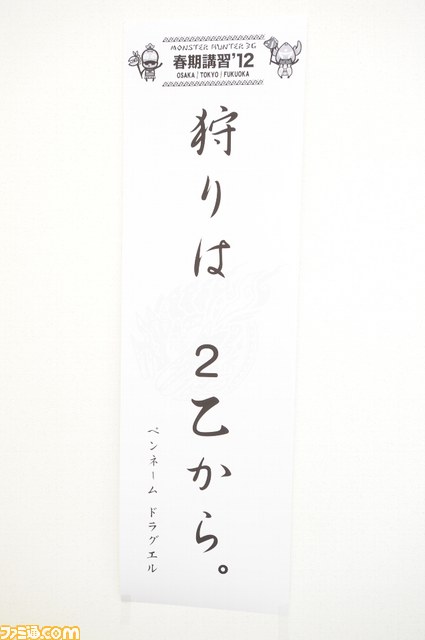 MONSTER HUNTER 3G
春期講習'12
OSAKA / TOKYO / FUKUOKA
狩りは　2乙から。
ペンネーム　ドラグエル
ファミ通.com